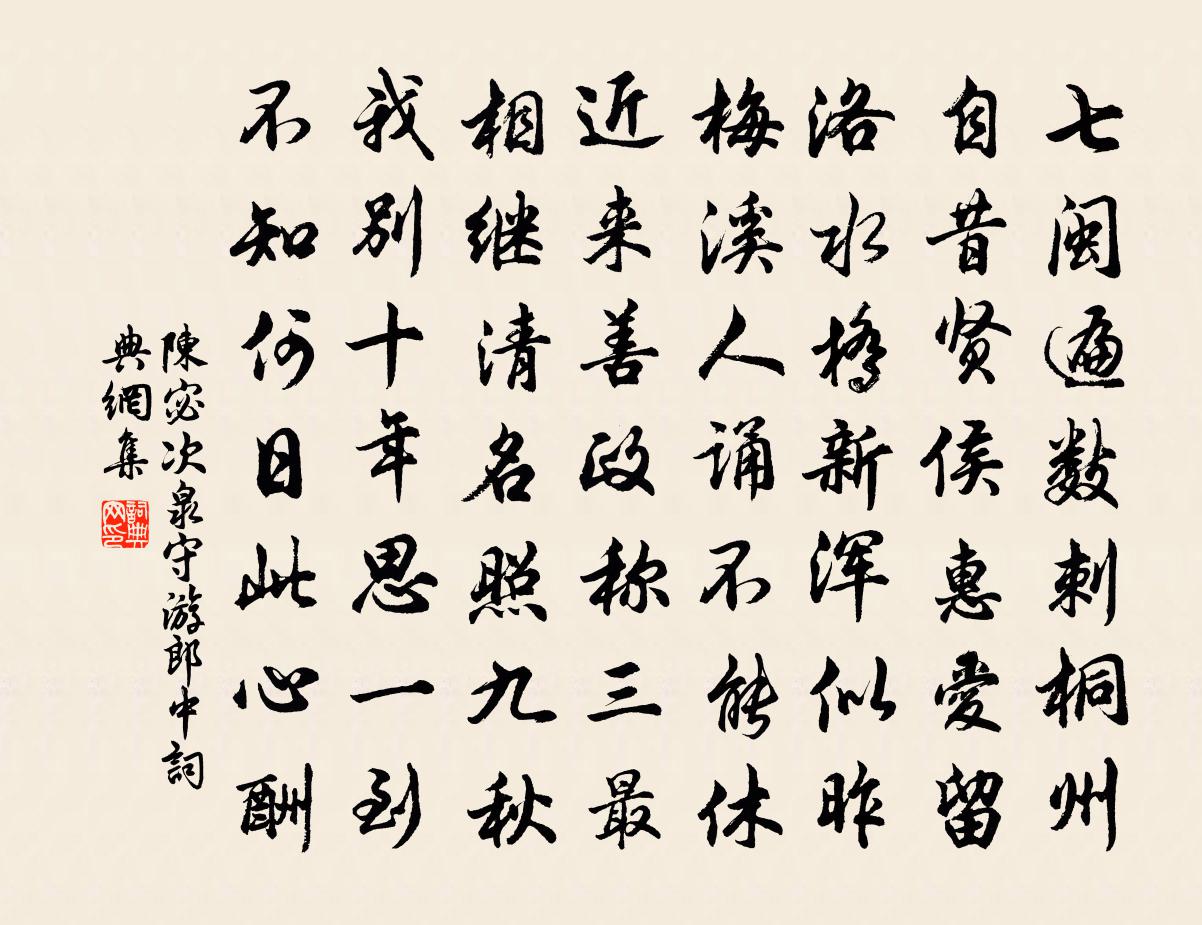 七闽遍数刺桐州
自昔贤侯惠愛留
洛水橋新浑似昨
梅溪人诵不能休
近来善政称三最
相继清名照九秋
我别十年思一到
不知何日此心酬
陳宓次泉守游郎中詞
典網集
詞典
网印